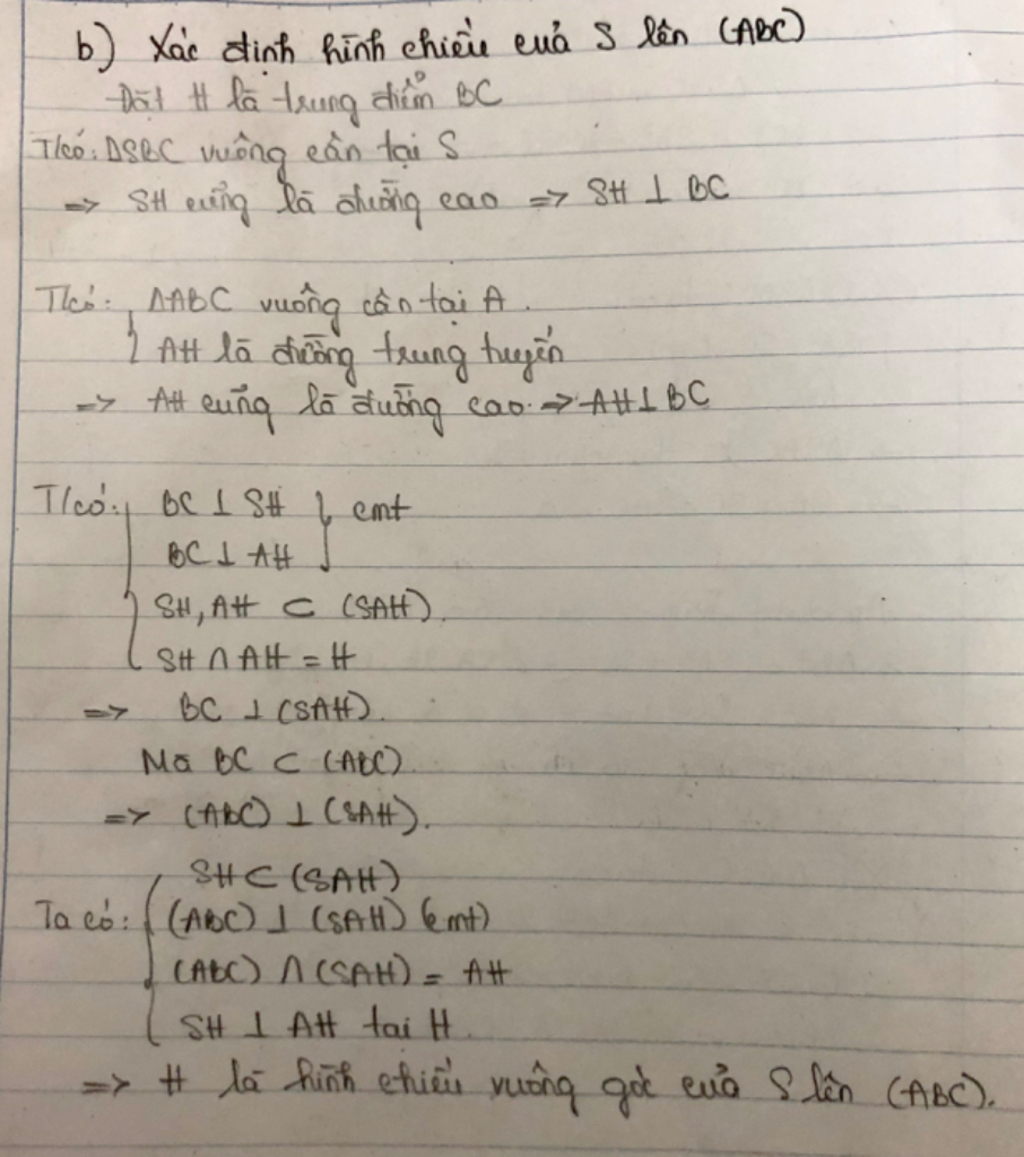 b) Xác định hình chiếu của S lên (ABC)
Đặt H là trung điểm BC
T/có: ΔSBC vuông cân tại S
=> SH cũng là đường cao => SH ⊥ BC
T/có: ΔABC vuông cân tại A.
AH là đường trung tuyến
=> AH cũng là đường cao => AH ⊥ BC
T/có: BC ⊥ SH } cmt
BC ⊥ AH
SH, AH ⊂ (SAH)
SH ∩ AH = H
=> BC ⊥ (SAH).
Mà BC ⊂ (ABC)
=> (ABC) ⊥ (SAH).
SH ⊂ (SAH)
Ta có: (ABC) ⊥ (SAH) (cmt)
(ABC) ∩ (SAH) = AH
SH ⊥ AH tại H
=> H là hình chiếu vuông góc của S lên (ABC).